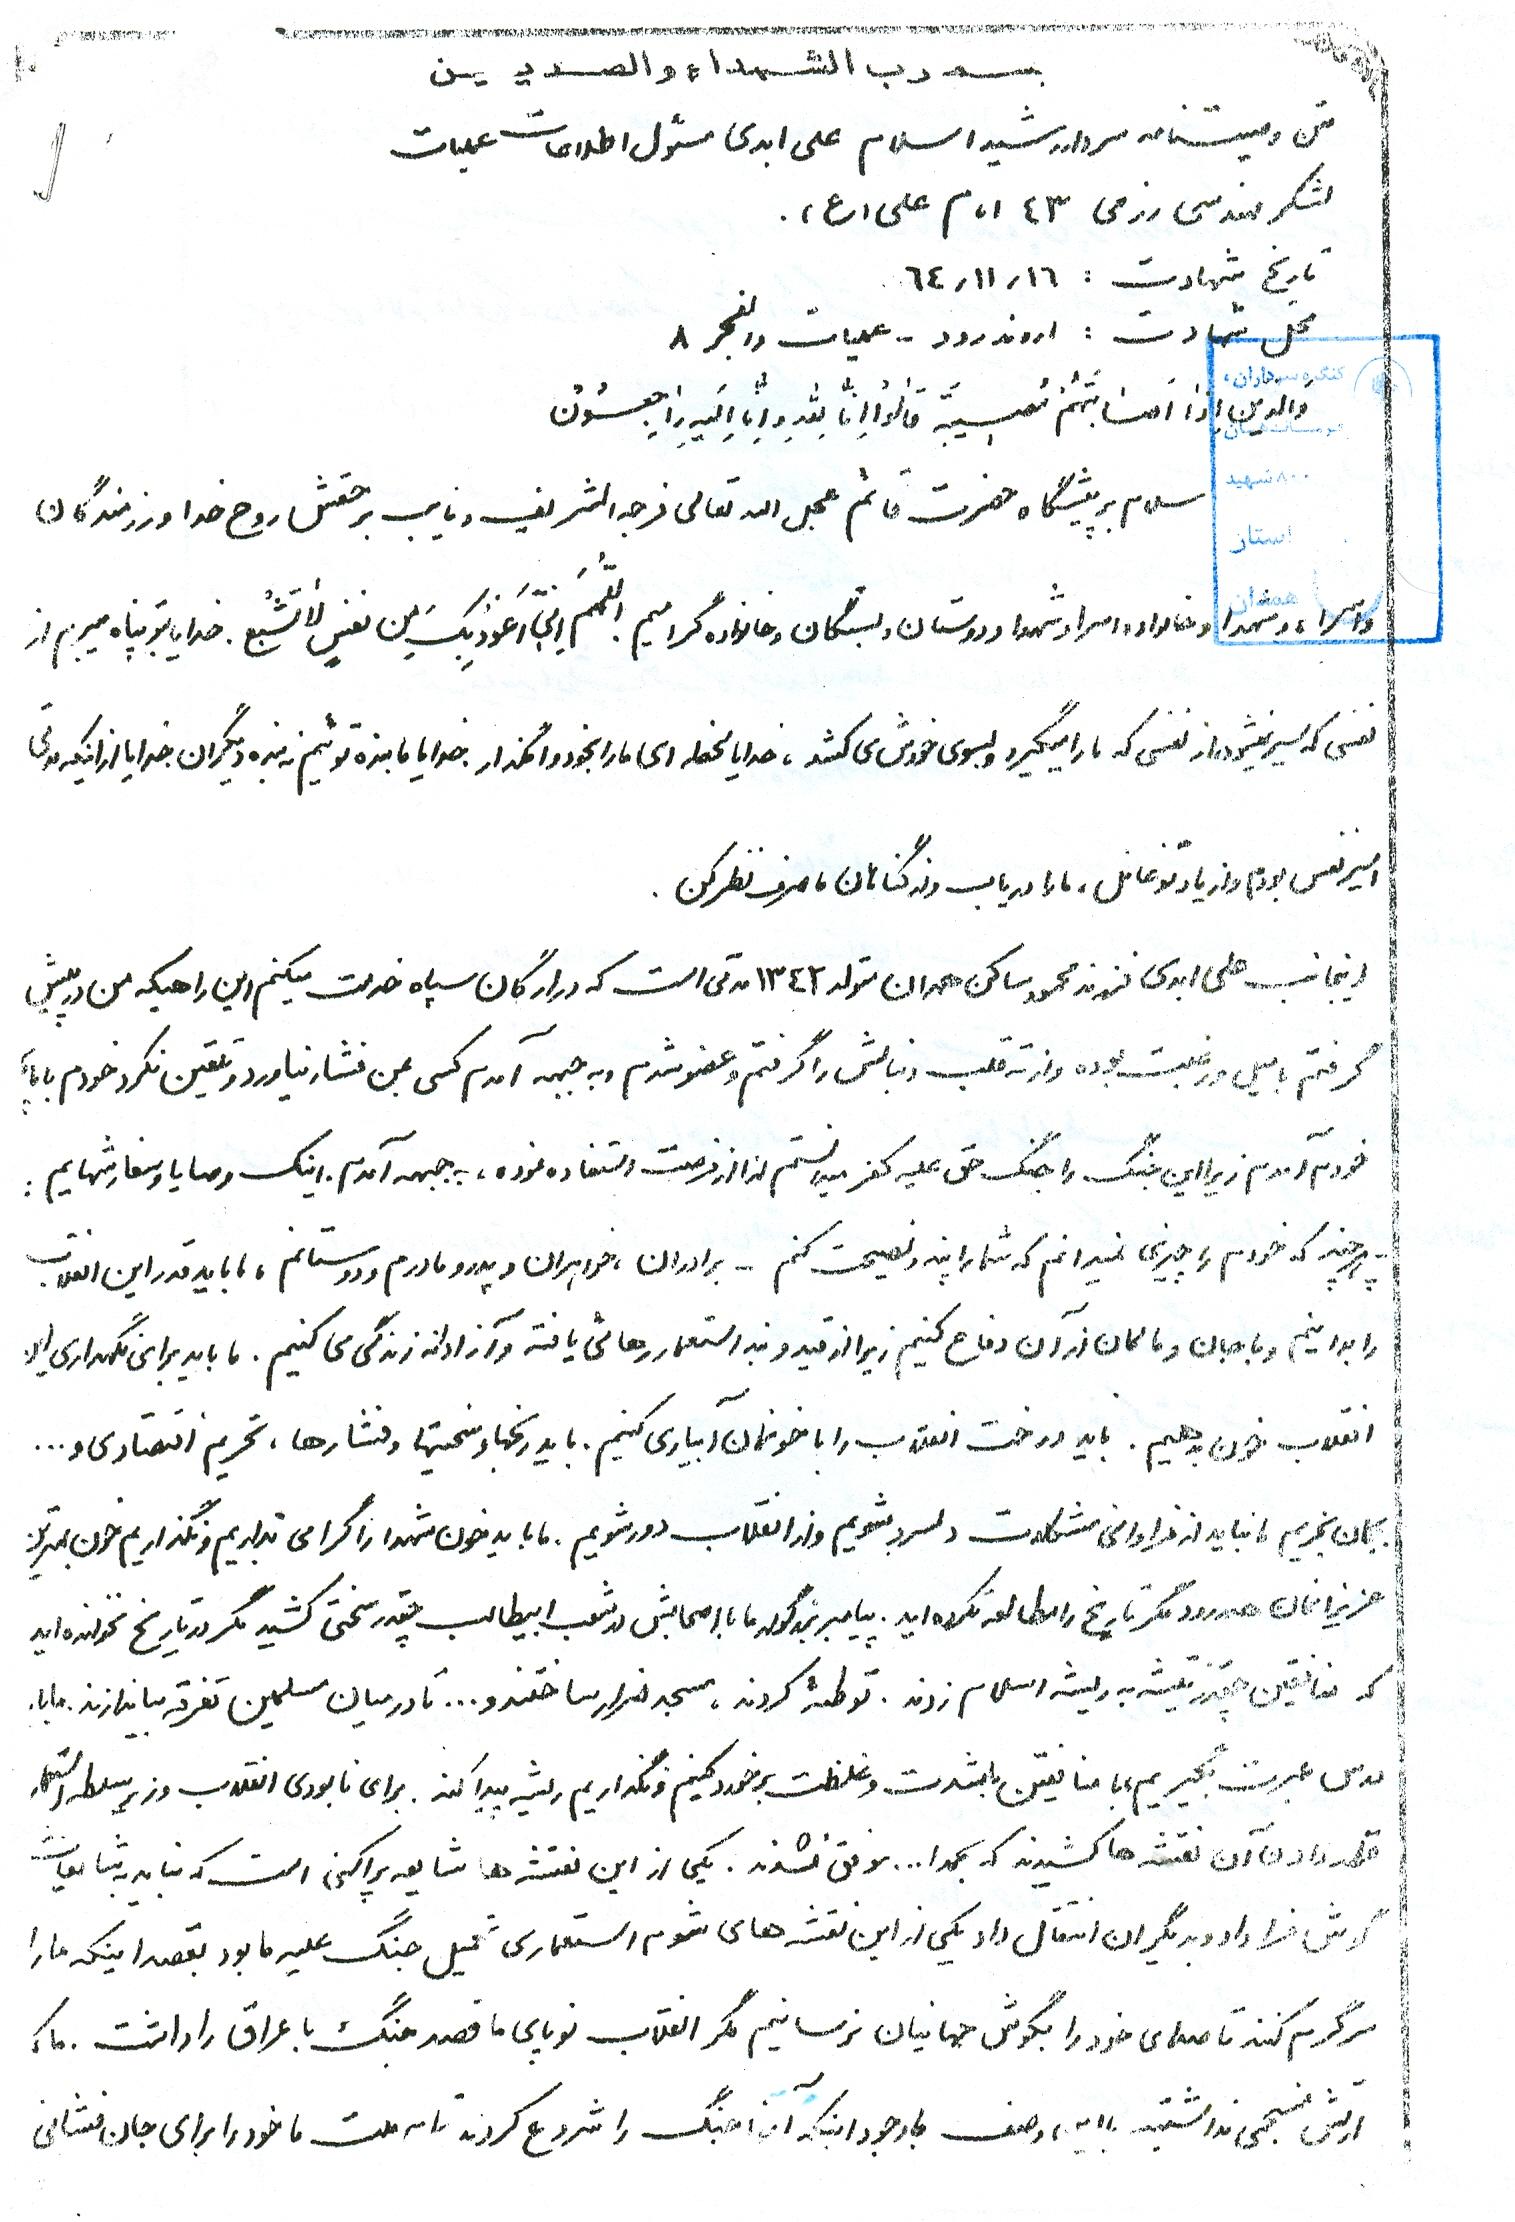 بسم رب الشهداء والصدیقین
متن وصیتنامه سردار رشید اسلام علی ابدی مسئول اطلاعات عملیات
لشکر مهندسی رزمی ٤٣ امام علی (ع).
تاریخ شهادت : ١٦ر١١ر٦٤
محل شهادت : اروند رود - عملیات والفجر ٨
وَالَّذین اِذا اَصابَتهُم مُصیبَة قالوُا اِنّا لِلّهِ وَ اِنّا اِلَیهِ راجِعون
سلام بر پیشگاه حضرت قائم عجل الله تعالی فرجه الشریف و نایب بر حقش روح خدا و رزمندگان
و اسراء و شهدا و خانواده اسرا و شهدا و دوستان و بستگان و خانواده گرامیم . اللّهُمَ اِنّی اَعوُذُ بِکَ مِن نَفسٍ لاٰ تَشبَع . خدایا بتو پناه میبرم از
نفسی که سیر نمیشود از نفسی که ما را میگیرد و بسوی خودش می کشد ، خدایا لحظه ای ما را بخود وامگذار خدایا ما بنده توئیم نه بنده دیگران خدایا از اینکه مدتی
اسیر نفس بودم و از یاد تو غافل ، ما را دریاب و از گناهان ما صرف نظر کن .
اینجانب علی ابدی فرزند محمود ساکن همدان متولد ١٣٤٢ مدتی است که در ارگان سپاه خدمت میکنم این راهیکه من در پیش
گرفتم با میل و رغبت بوده و از ته قلب دنبالش را گرفتم و عضو شدم و به جبهه آمدم کسی بمن فشار نیاورد و تلقین نکرد خودم با پای
خودم آمدم زیرا این جنگ را جنگ حق علیه کفر میدانستم لذا از فرصت استفاده نموده ، به جبهه آمدم . اینک وصایا و سفارشهایم :
- هر چند که خودم را چیزی نمیدانم که شما را پند و نصیحت کنم - برادران ، خواهران و پدر و مادرم و دوستانم ، ما باید قدر این انقلاب
را بدانیم و با جان و مالمان از آن دفاع کنیم زیرا از قید و بند استعمار رهائی یافته و آزادانه زندگی می کنیم . ما باید برای نگهداری این
انقلاب خون بدهیم . باید درخت انقلاب را با خونمان آبیاری کنیم . باید رنجها و سختیها و فشارها ، تحریم اقتصادی و ...
بجان بخریم ما نباید از فراوانی مشکلات دلسرد شویم و از انقلاب دور شویم . ما باید خون شهدا را گرامی بداریم و نگذاریم خون بهترین
عزیزانمان هدر رود مگر تاریخ را مطالعه نکرده اید . پیامبر بزرگوار ما با اصحابش در شعب ابیطالب چقدر سختی کشید مگر در تاریخ نخوانده اید
که منافقین چقدر تیشه به ریشه اسلام زدند . توطئه کردند ، مسجد ضرار ساختند و ... تا در میان مسلمین تفرقه بیاندازند . ما باید
درس عبرت بگیریم ، با منافقین با شدت و غلظت برخورد کنیم و نگذاریم ریشه پیدا کند . برای نابودی انقلاب و زیر سلطه استعمار
قرار دادن آن نقشه ها کشیدند که بحمدا... موفق نشدند . یکی از این نقشه ها شایعه پراکنی است که نباید به شایعات
گوش فرا داد و بدیگران انتقال داد یکی از این نقشه های شوم استعماری تحمیل جنگ علیه ما بود بقصد اینکه ما را
سرگرم کنند تا صدای خود را بگوش جهانیان نرسانیم مگر انقلاب نوپای ما قصد جنگ با عراق را داشت . ما که
ارتش منسجمی نداشتیم با این وصف با وجود اینکه آنها جنگ را شروع کردند تا ملت ما خود را برای جان فشانی
کنگره سرداران ،
٨٠٠٠ شهید
استان
همدان